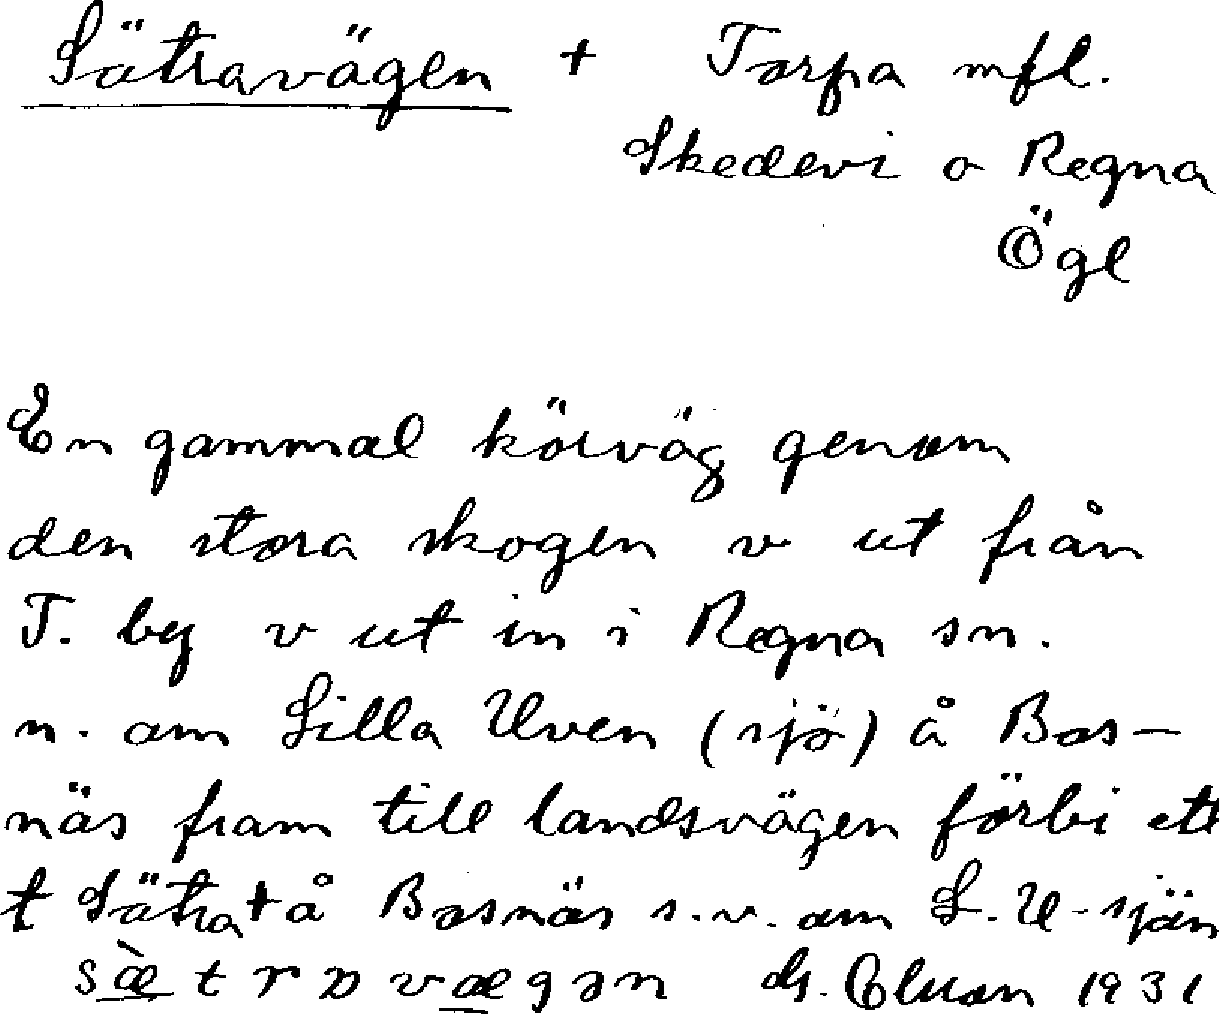 Sätravägen + Torpa mfl.
Skedevi o Regna
Ögl
En gammal körväg genom
den stora skogen v ut från
T. by v ut in i Regna sn.
n. om Lilla Uven (sjö) å Bos-
näs fram till landsvägen förbi ett
t Sätra + å Bosnäs s.v. om L. U-sjön
sæ̀trɒvægən 1931